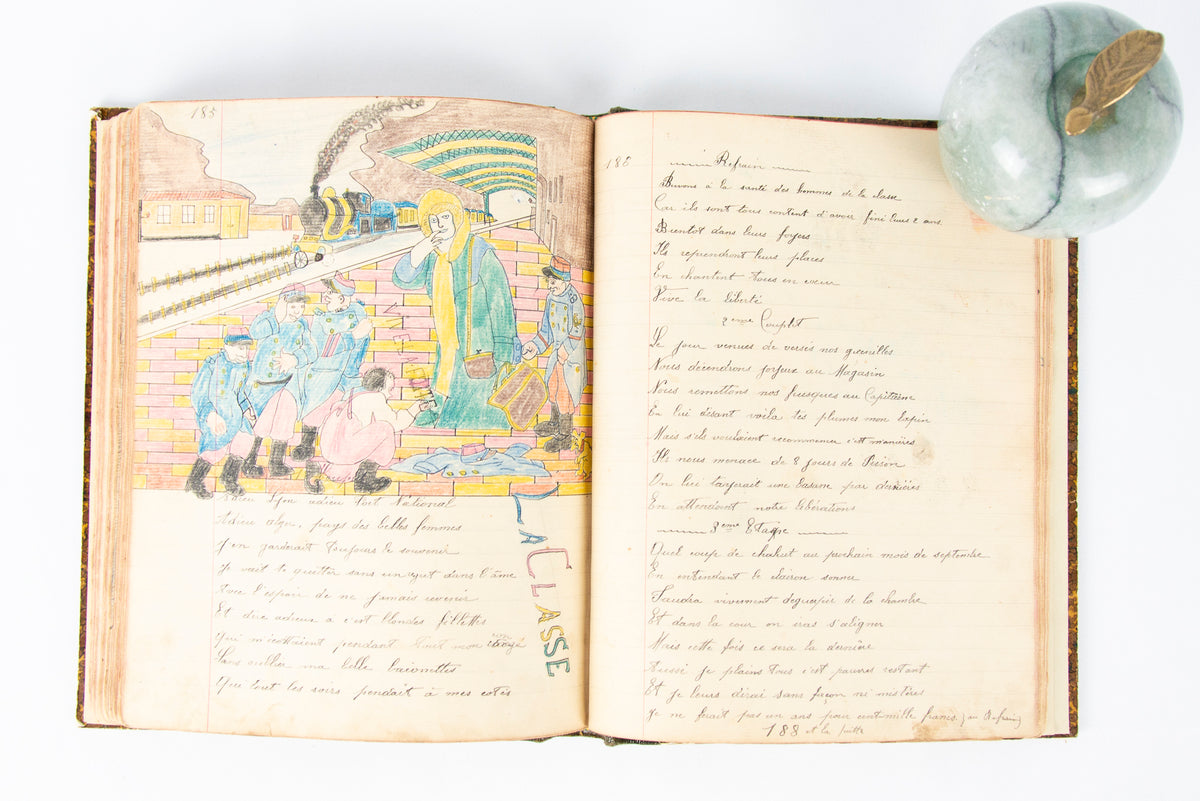 185
Adieu Lyon adieu fort National
Adieu alger, pays des belles femmes
J'en garderait toujours le souvenir
Je vait te quitter sans un dans l'âme
Avec l'espoir de ne jamais revenir
Et dire adieux a c'est blondes fillettes
Qui pendant tout mon
Sans oublier ma belle baionettes
Que tout les soirs pendait à mes cotés
LA CLASSE
186
Refrain
Buvons à la santé des hommes de la classe
Car ils sont tous content d'avoir fini leurs 2 ans.
Bientot dans leurs foyers
Ils reprendront leurs places
En chantent tous en cœur
Vive la liberté
2eme Couplet
Le jour venues de versés nos guenilles
Nous décendrons joyeux au Magasin
Nous remettons nos frusques au Capitaine
En lui disant voila les plumes mon
Mais s'ils voulaient recommencer c'est manières
Ils nous menace de 8 jours de Prison
On lui une basane par derrières
En attendient notre libérations
3eme
Quel coup de chahut au prochain mois de septembre
En entendant le clairon sonner
Faudra vivement deguerpir de la chambre
Et dans la cour on iras s'aligner
Mais cette fois ce sera la dernière
Aussi je plains tous c'est pauvres restant
Et je leurs dirai sans façon ni mistères
Je ne ferait pas un ans pour cent mille francs. (au Refrain)
188 et la suite